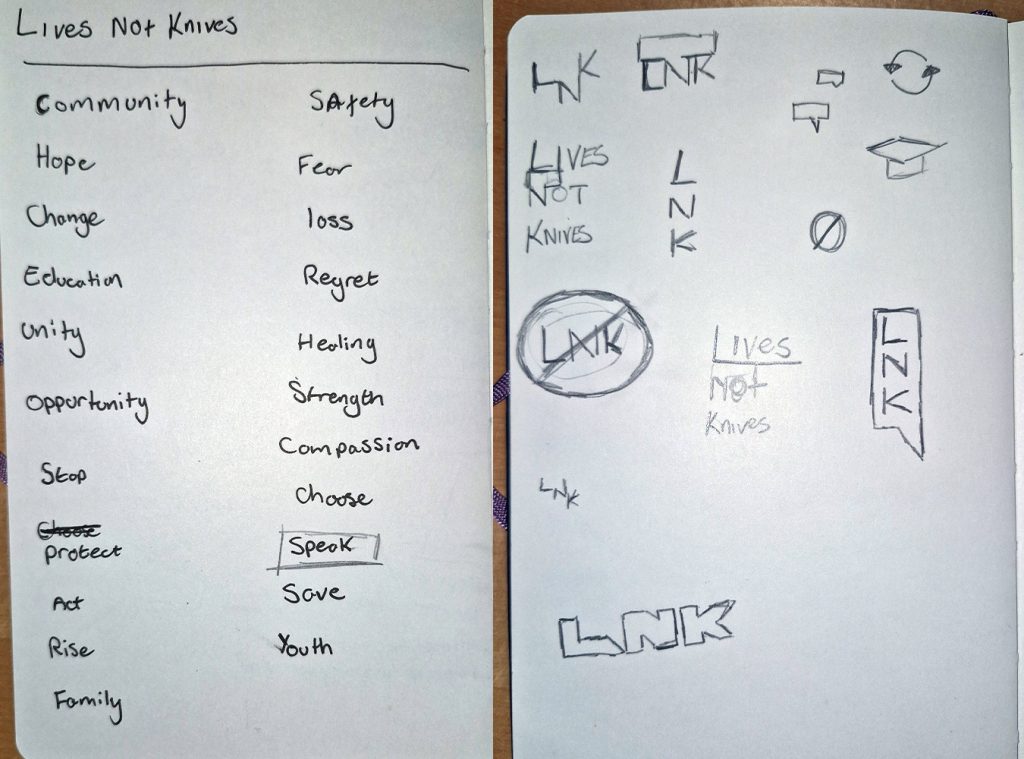 Lives Not Knives
Community
Hope
Change
Education
Unity
Opportunity
Stop
Choose
Protect
Act
Rise
Family
Safety
Fear
loss
Regret
Healing
Strength
Compassion
Choose
Speak
Save
Youth
LNK
LNK
LIVES
NOT
KNIVES
L
N
K
LNK
Lives
Not
Knives
L
N
K
LNK
LNK